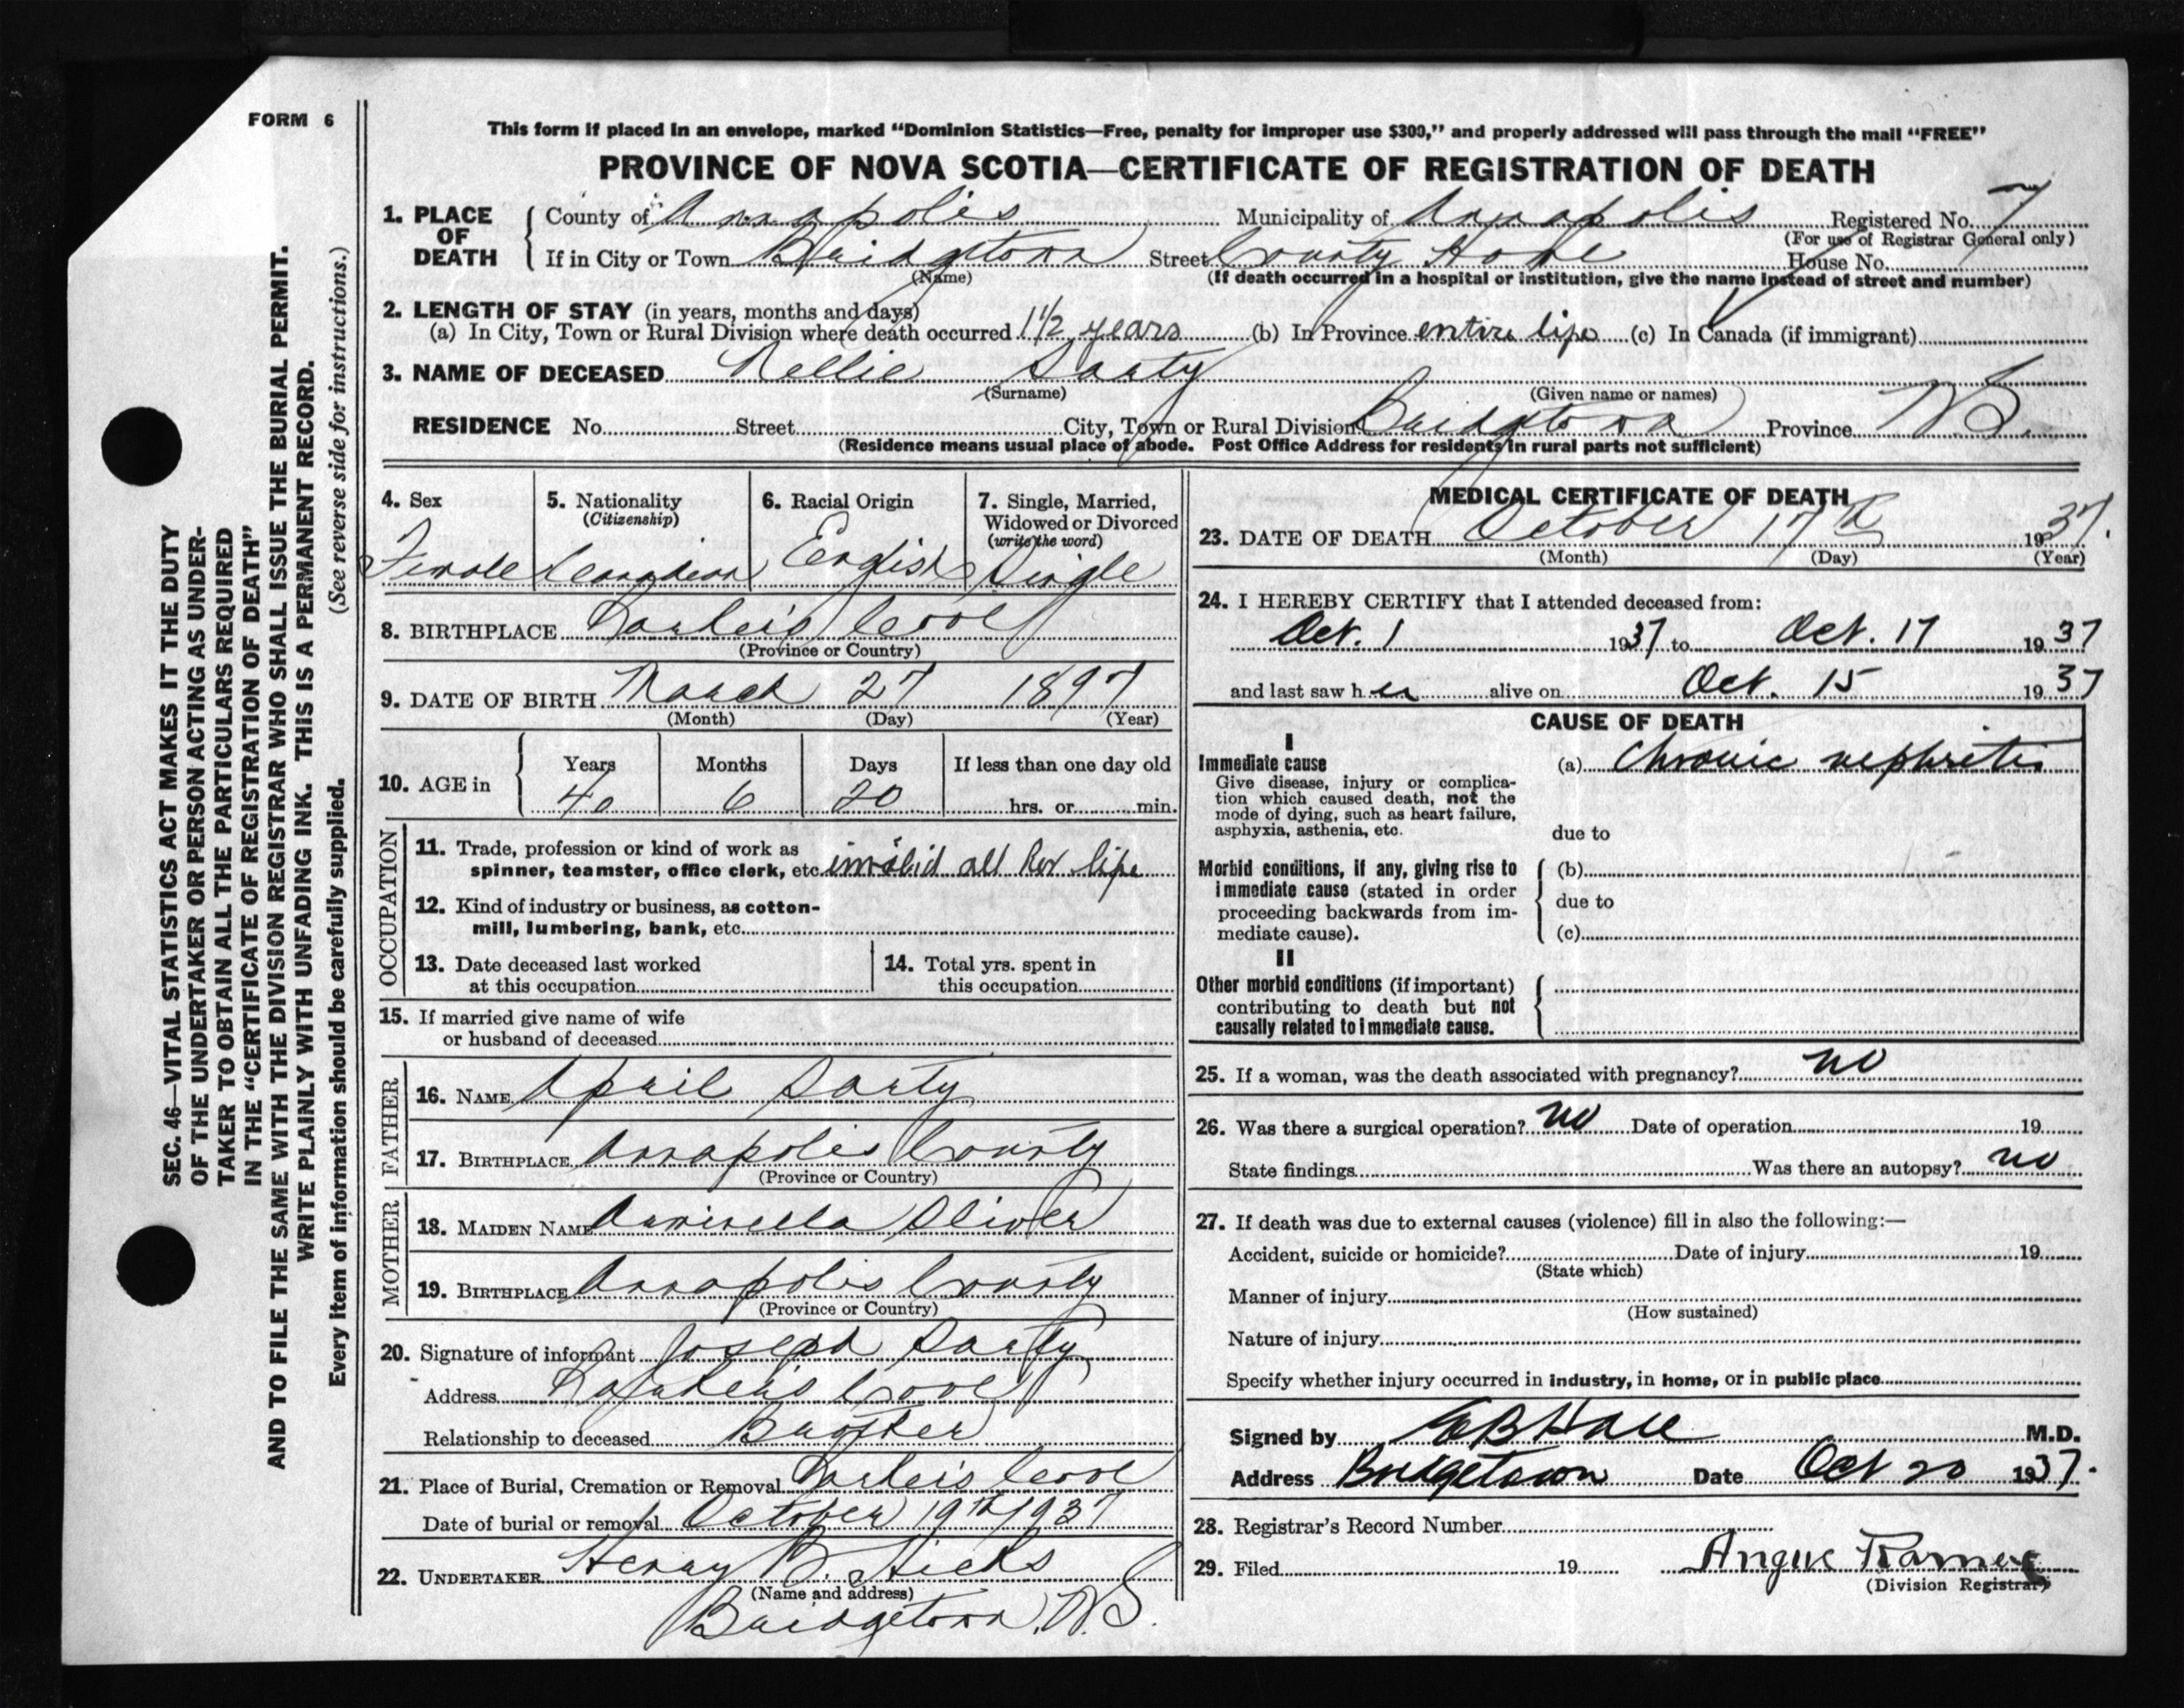 FORM 6
This form if placed in an envelope, marked "Dominion Statistics—Free, penalty for improper use $300," and properly addressed will pass through the mail "FREE"
PROVINCE OF NOVA SCOTIA—CERTIFICATE OF REGISTRATION OF DEATH
1. PLACE OF DEATH
County of Annapolis Municipality of Annapolis Registered No. 7
(For use of Registrar General only)
If in City or Town Bridgetown Street County Home House No.
(Name) (If death occurred in a hospital or institution, give the name instead of street and number)
2. LENGTH OF STAY (in years, months and days)
(a) In City, Town or Rural Division where death occurred 1 1/2 years (b) In Province entire life (c) In Canada (if immigrant)
3. NAME OF DECEASED Nellie Sarty
(Surname) (Given name or names)
RESIDENCE No. Street City, Town or Rural Division Bridgetown Province N.S.
(Residence means usual place of abode. Post Office Address for residents in rural parts not sufficient)
4. Sex
Female
5. Nationality
(Citizenship)
Canadian
6. Racial Origin
English
7. Single, Married,
Widowed or Divorced
(write the word)
Single
8. BIRTHPLACE Cove
(Province or Country)
9. DATE OF BIRTH March 27 1897
(Month) (Day) (Year)
10. AGE in
Years Months Days If less than one day old
40 6 20 hrs. or min.
OCCUPATION
11. Trade, profession or kind of work as
spinner, teamster, office clerk, etc. invalid all her life
12. Kind of industry or business, as cotton-
mill, lumbering, bank, etc.
13. Date deceased last worked
at this occupation
14. Total yrs. spent in
this occupation
15. If married give name of wife
or husband of deceased
FATHER
16. NAME April Sarty
17. BIRTHPLACE Annapolis County
(Province or Country)
MOTHER
18. MAIDEN NAME Oliver
19. BIRTHPLACE Annapolis County
(Province or Country)
20. Signature of informant Joseph Sarty
Address Cove
Relationship to deceased Brother
21. Place of Burial, Cremation or Removal Cove
Date of burial or removal October 19th 1937
22. UNDERTAKER Henry B. Hicks
(Name and address)
Bridgetown, N.S.
MEDICAL CERTIFICATE OF DEATH
23. DATE OF DEATH October 17th 1937.
(Month) (Day) (Year)
24. I HEREBY CERTIFY that I attended deceased from:
Oct. 1 1937 to Oct. 17 1937
and last saw her alive on Oct. 15 1937
CAUSE OF DEATH
I
Immediate cause
Give disease, injury or complica-
tion which caused death, not the
mode of dying, such as heart failure,
asphyxia, asthenia, etc.
(a) Chronic nephritis
due to
Morbid conditions, if any, giving rise to
immediate cause (stated in order
proceeding backwards from im-
mediate cause).
(b)
due to
(c)
II
Other morbid conditions (if important)
contributing to death but not
causally related to immediate cause.
25. If a woman, was the death associated with pregnancy? no
26. Was there a surgical operation? no Date of operation 19
State findings Was there an autopsy? no
27. If death was due to external causes (violence) fill in also the following:—
Accident, suicide or homicide? Date of injury 19
(State which)
Manner of injury
(How sustained)
Nature of injury
Specify whether injury occurred in industry, in home, or in public place
Signed by M.D.
Address Bridgetown Date Oct 20 1937.
28. Registrar's Record Number
29. Filed 19 Angus
(Division Registrar)
SEC. 46—VITAL STATISTICS ACT MAKES IT THE DUTY
OF THE UNDERTAKER OR PERSON ACTING AS UNDER-
TAKER TO OBTAIN ALL THE PARTICULARS REQUIRED
IN THE "CERTIFICATE OF REGISTRATION OF DEATH"
AND TO FILE THE SAME WITH THE DIVISION REGISTRAR WHO SHALL ISSUE THE BURIAL PERMIT.
WRITE PLAINLY WITH UNFADING INK. THIS IS A PERMANENT RECORD.
Every item of information should be carefully supplied. (See reverse side for instructions.)